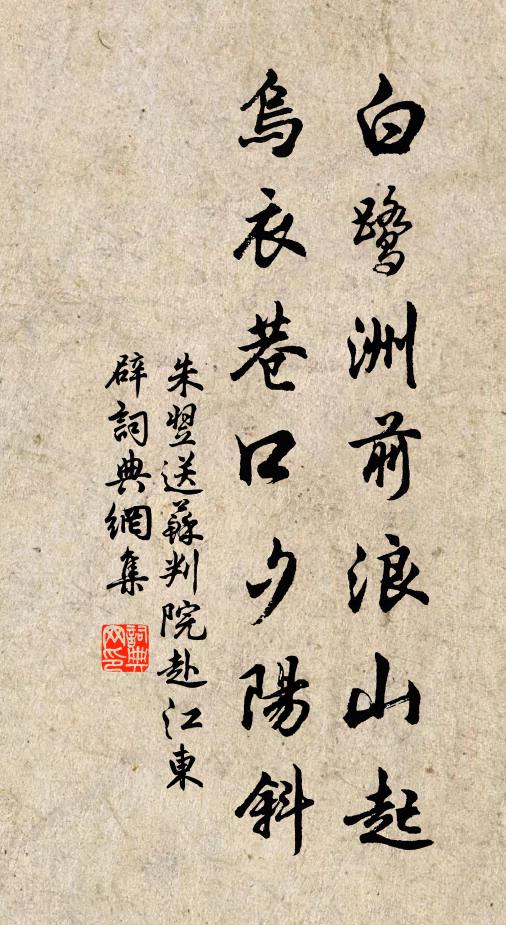 白鷺洲前浪山起
烏衣巷口夕陽斜
朱翌送蘇判院赴江東
辟詞典網集
詞典网印